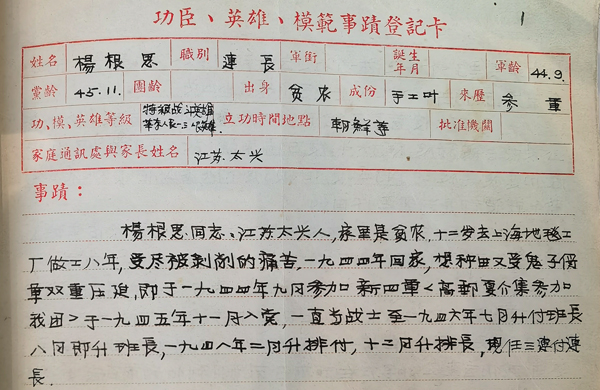 功臣、英雄、模範事蹟登記卡 1
姓名 楊根思 職別 連長 軍銜 誕生年月 軍齡 44.9.
黨齡 45.11. 團齡 出身 貧农 成份 手工叶 来歷 参軍
功、模、英雄等級 特級战斗英雄 立功時間地點 朝鮮等 批准機關
家庭通訊處與家長姓名 江苏太兴
事蹟：
楊根思同志、江苏太兴人，家里是贫农，十二岁去上海地毯工
厂做工八年，受尽被剥削的痛苦，一九四四年回家，想种田又受鬼子伪
軍双重压迫，即于一九四四年九月参加新四軍<高邮夏介集参加
我团>于一九四五年十一月入党，一直当战士至一九四六年七月升付班長
八月即升班長，一九四八年二月升排付，十二月升排長，現任三連付連
長.